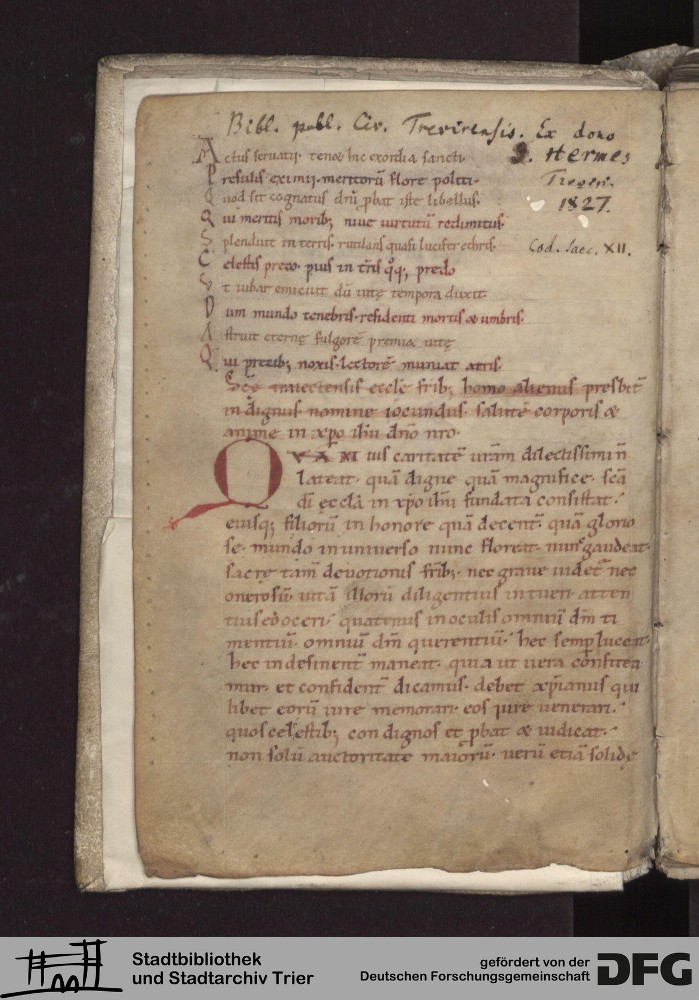 Bibl. publ. Civ. Trevirensis. Ex dono
Hermes
Trever.
1827.
Cod. saec. XII.
Actus seruatii tenor hic exordia sancti.
Presulis eximii meritorũ flore politi.
Quod sit cognatus dñi pbat iste libellus.
Qui meritis morib; niue uirtutũ redimitus.
Splenduit in terris rutilans quasi lucifer ethris.
Celestis preco pius in tris qq; predo
Et iubar emicuit dũ uitę tempora duxit.
Dum mundo tenebris residenti mortis & umbris.
Astruit eternę fulgorẽ premia uitę
Qui precib; noxis lectorẽ muniat atris.
Scę traiectensis ecclę frib; homo alienus presbit̃
indignus nomine iocundus salutẽ corporis &
animę in xpo ihu dño nro.
QVAM uis caritatẽ urãm dilectissimi ñ
lateat quã digne quã magnifice scã
dĩ ęcclã in xpo ihu fundata consistat.
eiusq; filiorũ in honore quã decent̃ quã glorio
se mundo in uniuerso nunc floreat nunc gaudeat.
sacrę tam̃ deuotionis frib; nec graue uidet̃ nec
onerosũ uitã illorũ diligentius intueri atten
tius edoceri. quatenus in oculis omniũ dm̃ ti
mentiũ. omniũ dm̃ querentiũ. hec semp luceat.
hec indesinent̃ maneat. quia ut uera confitea
mur. et confident̃ dicamus. debet xpianus qui
libet eorũ iure memorari eos iure uenerari.
quos celestib; condignos et pbat & iudicat.
non solũ auctoritate maiorũ. uerũ etiã solidę
Stadtbibliothek
und Stadtarchiv Trier
gefördert von der
Deutschen Forschungsgemeinschaft
DFG